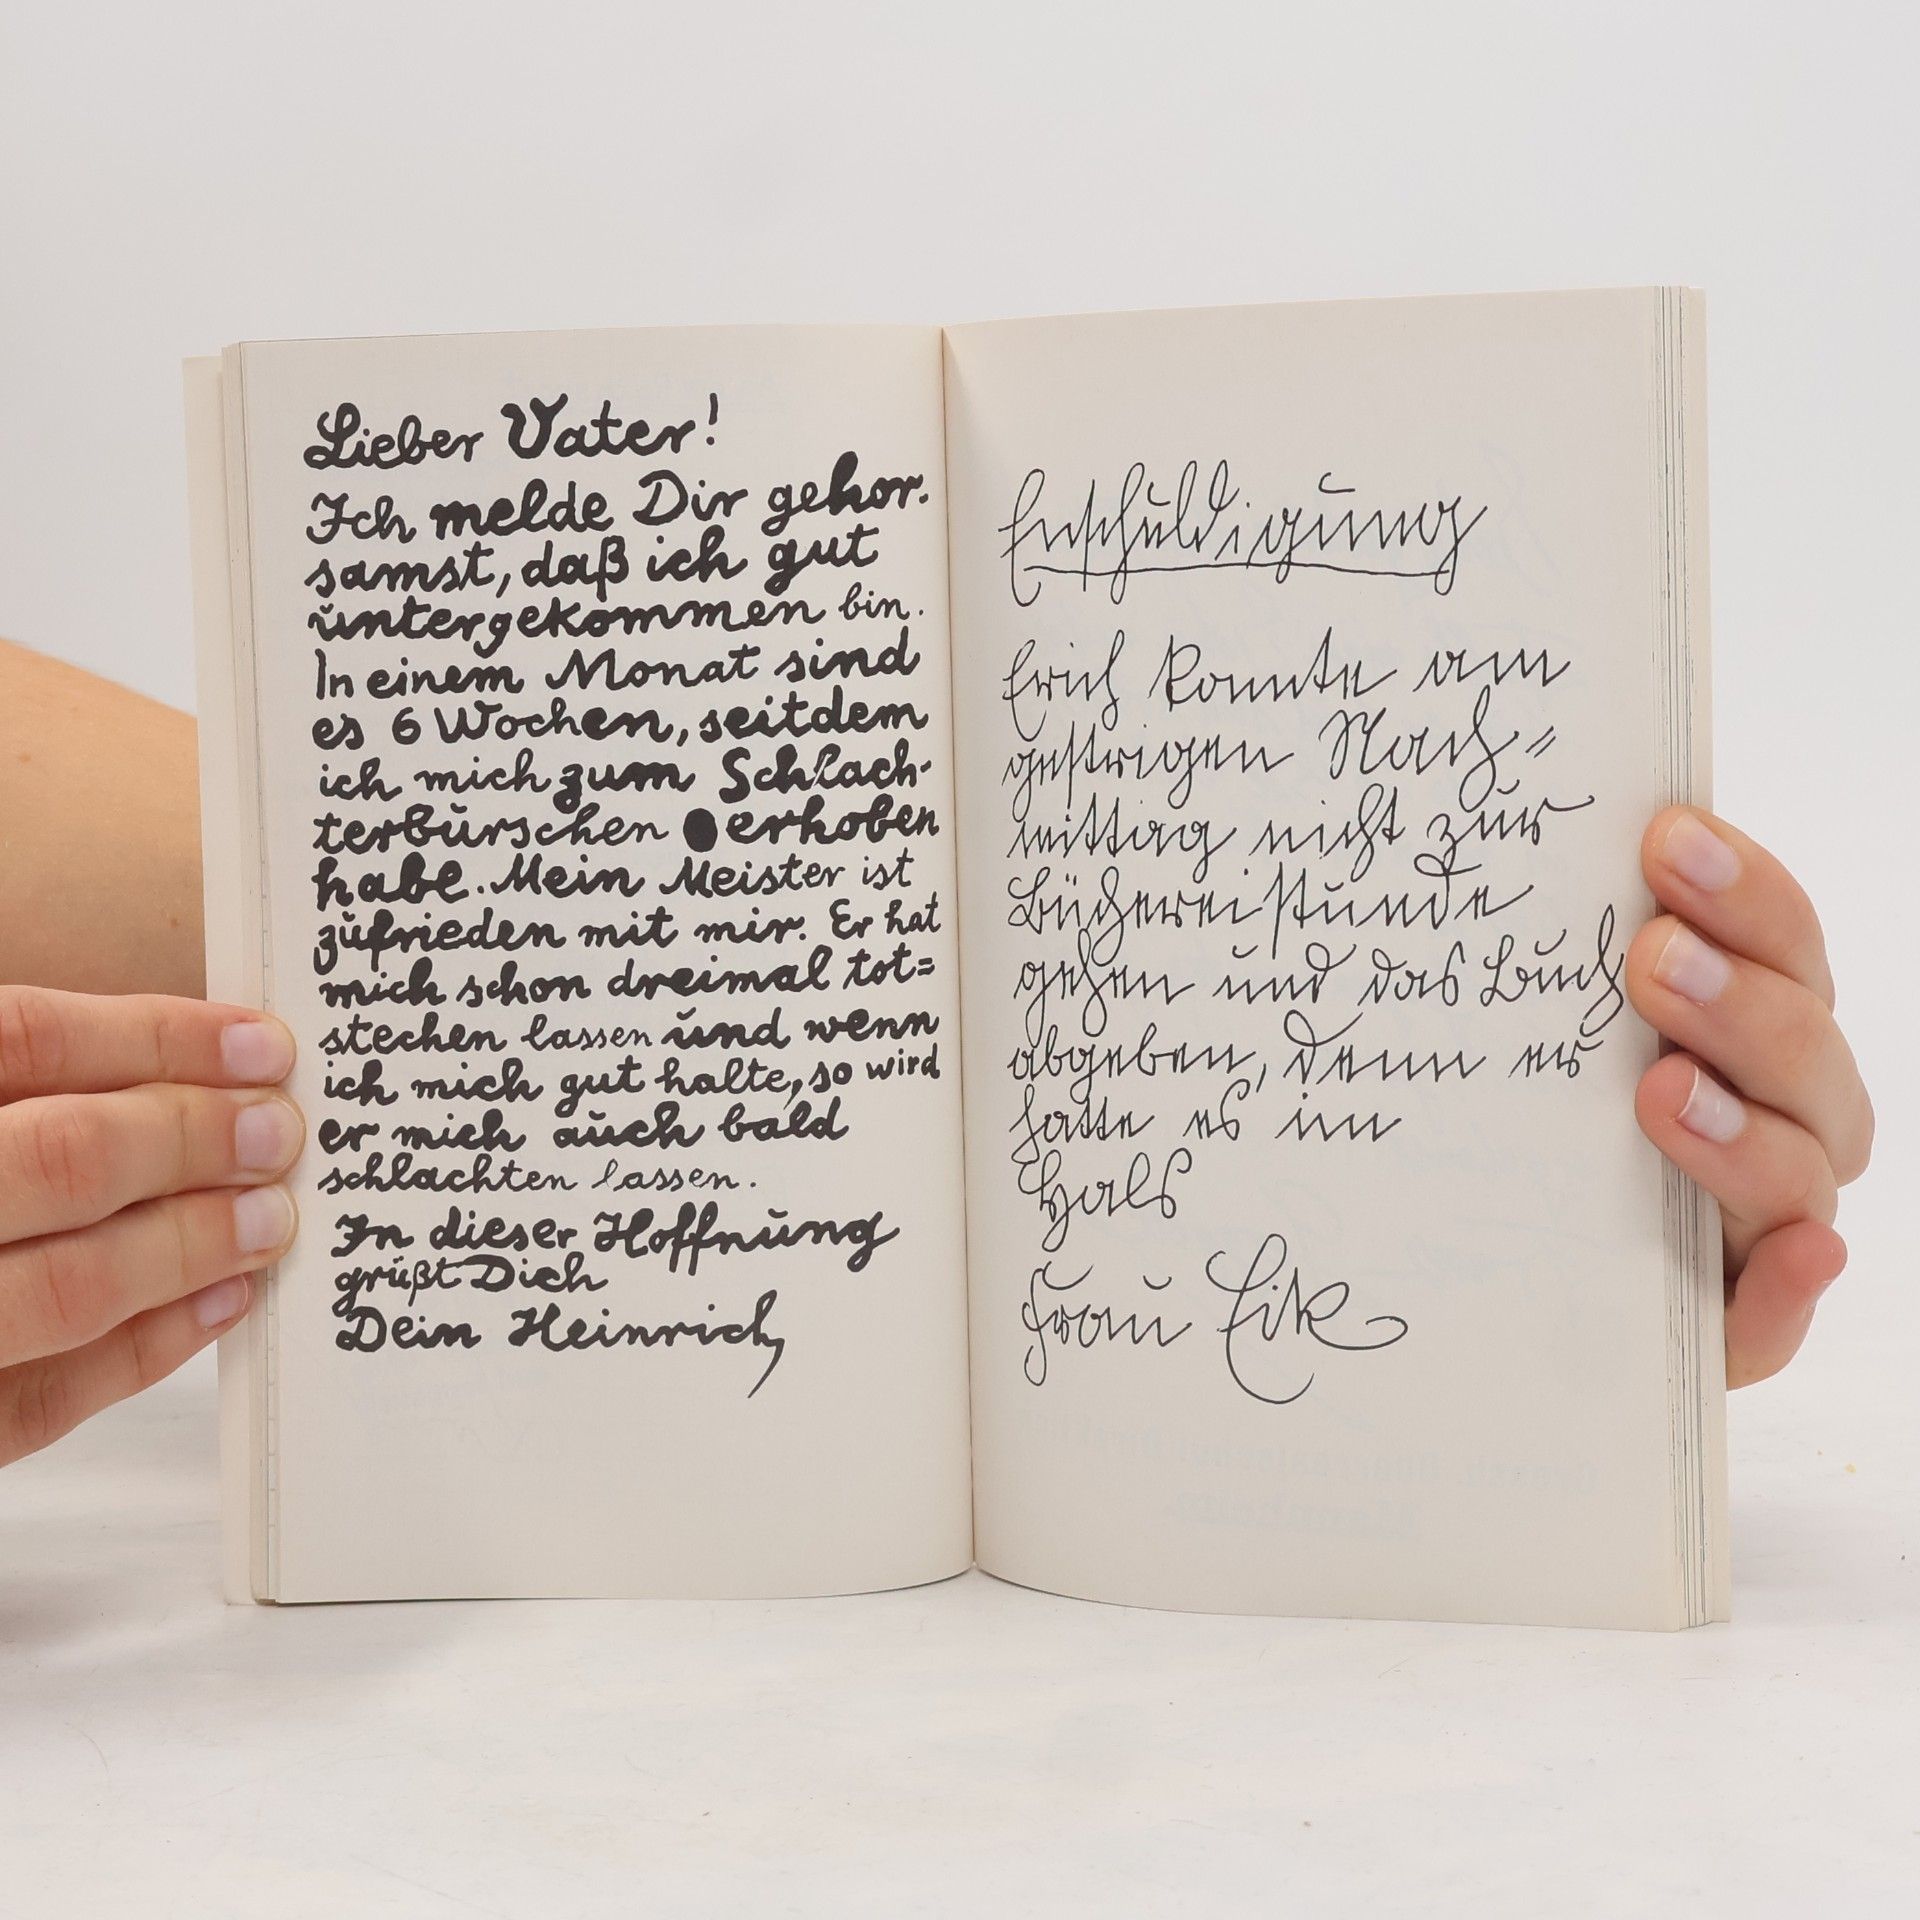 Lieber Vater!
Ich melde Dir gehor-
samst, daß ich gut
untergekommen bin.
In einem Monat sind
es 6 Wochen, seitdem
ich mich zum Schlach-
terburschen erhoben
habe. Mein Meister ist
zufrieden mit mir. Er hat
mich schon dreimal tot=
stechen lassen und wenn
ich mich gut halte, so wird
er mich auch bald
schlachten lassen.
In dieser Hoffnung
grüßt Dich
Dein Heinrich
Enschuldigung
Erich konnte am
gestrigen Nach=
mittag nicht zur
Büchereistunde
gehen und das Buch
abgeben, denn er
hatte es im
Hals
Frau Eik